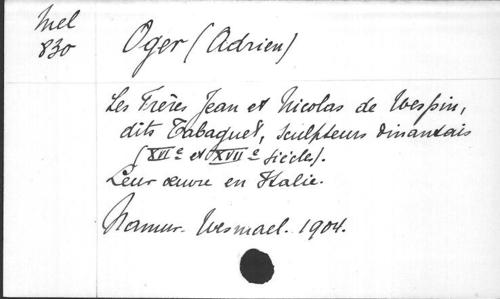 Mel
830
Oger (Adrien)
Les Frères Jean et Nicolas de Wespin,
dits Tabaguet, sculpteurs dinantais
(XVIe et XVIIe siècles).
Leur œuvre en Italie.
Namur. Wesmael. 1904.